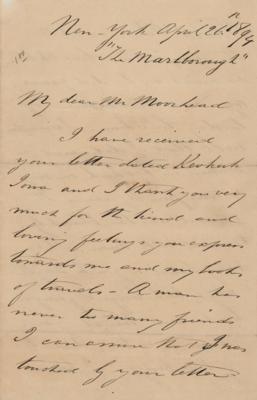 New-York April 26th 1894
"The Marlborough"
My dear Mr Moorhead
I have received
your letter dated Keokuk
Iowa and I thank you very
much for the kind and
loving feelings you express
towards me and my books
of travels - A man has
never to many friends
I can assure
touched by your letter